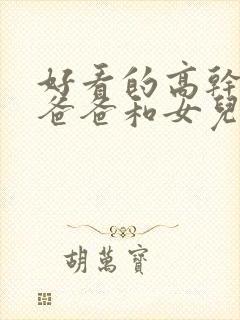 好看的高幹
爸爸和女兒
胡萬寶